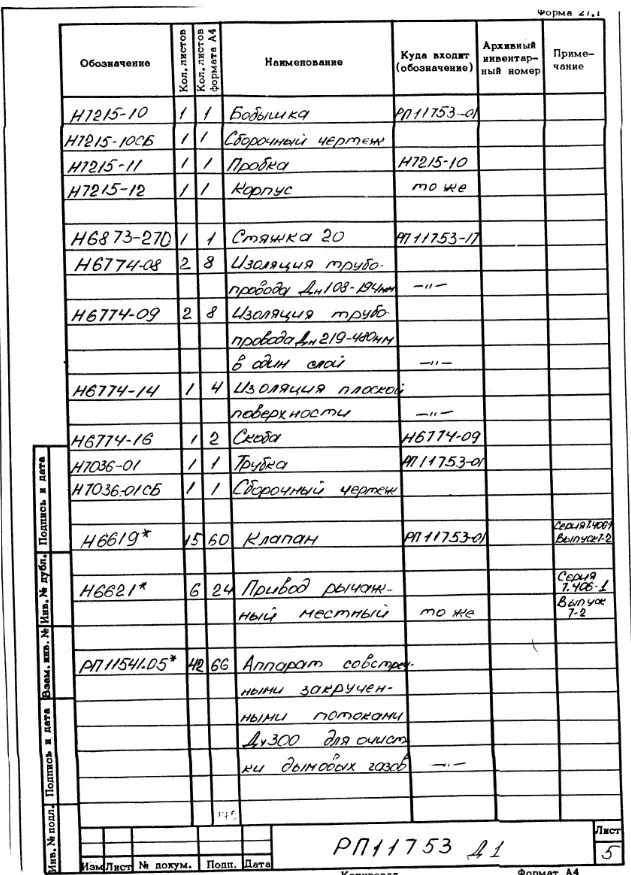 Форма 21,1
Обозначение Кол. листов Кол. листов формата А4 Наименование Куда входит (обозначение) Архивный инвентар-ный номер Приме-чание
Н7215-10 1 1 Бобышка РП11753-01
Н7215-10СБ 1 1 Сборочный чертеж
Н7215-11 1 1 Пробка Н7215-10
Н7215-12 1 1 Корпус то же
Н6873-270 1 1 Стяжка 20 РП11753-17
Н6774-08 2 8 Изоляция трубо-
провода Дн108-194мм —"—
Н6774-09 2 8 Изоляция трубо-
провода Дн219-480мм
в один слой —"—
Н6774-14 1 4 Изоляция плоской
поверхности —"—
Н6774-16 1 2 Скоба Н6774-09
Н7036-01 1 1 Трубка РП11753-01
Н7036-01СБ 1 1 Сборочный чертеж
Н6619* 15 60 Клапан РП11753-01 Серия 7.406-1 Выпуск 7-2
Н6621* 6 24 Привод рычаж- Серия 7.406-1
ный местный то же Выпуск 7-2
РП11541.05* 42 66 Аппарат со встреч-
ными закручен-
ными потоками
Ду300 для очист
ки дымовых газов —"—
Подпись и дата
Инв. № дубл.
Взам. инв. №
Подпись и дата
Инв. № подл.
Изм Лист № докум. Подп. Дата
РП11753 Д1
Лист
5
Копировал Формат А4